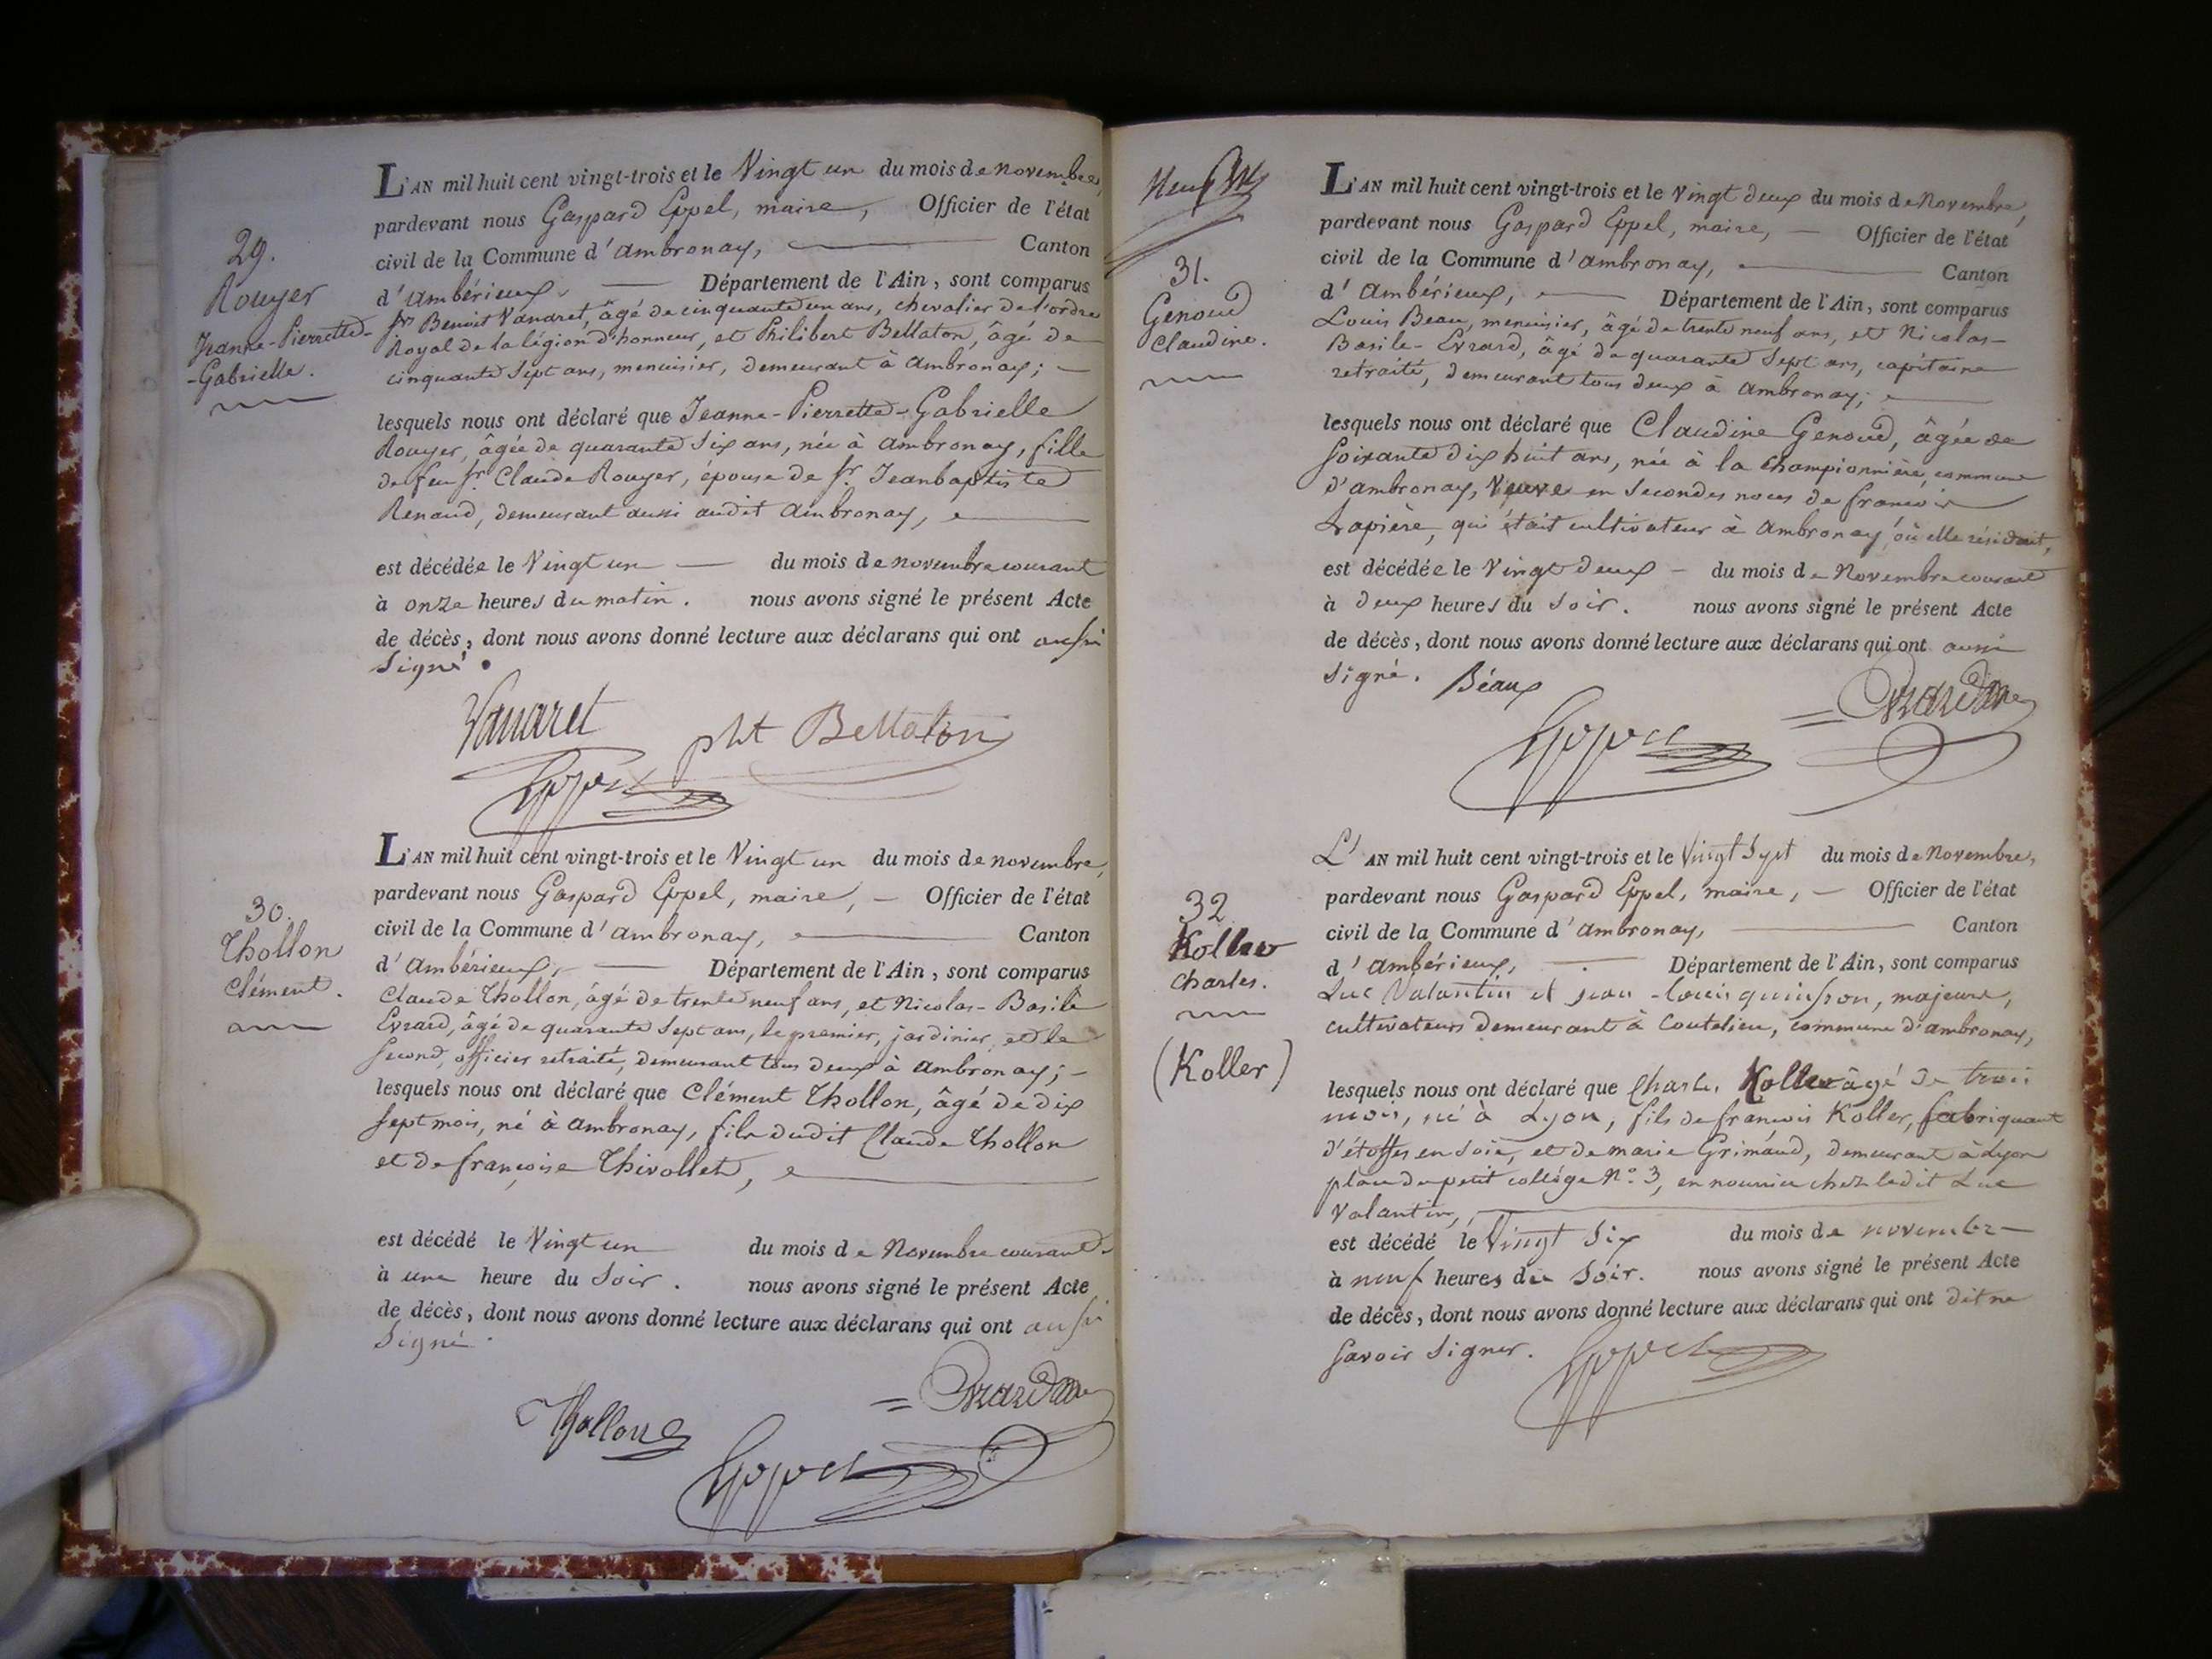 29.
Rouyer
Jeanne-Pierrette-
-Gabrielle.
L'AN mil huit cent vingt-trois et le Vingt un du mois de novembre,
pardevant nous Gaspard Eppel, maire, Officier de l'état
civil de la Commune d'ambronay, Canton
d'ambérieux, Département de l'Ain, sont comparus
Sr Benoit Vanaret, âgé de cinquante un ans, chevalier de l'ordre
Royal de la légion d'honneur, et Philibert Bellaton, âgé de
cinquante Sept ans, menuisier, demeurant à ambronay;
lesquels nous ont déclaré que Jeanne-Pierrette-Gabrielle
Rouyer, âgée de quarante Six ans, née à ambronay, fille
de feu Sr. Claude Rouyer, épouse de Sr. Jeanbaptiste
Renaud, demeurant aussi audit ambronay,
est décédée le Vingt un du mois de novembre courant
à onze heures du matin. nous avons signé le présent Acte
de décès, dont nous avons donné lecture aux déclarans qui ont aussi
Signé.
Vanaret
pbt Bellaton
Eppel
30.
Thollon
Clément.
L'AN mil huit cent vingt-trois et le Vingt un du mois de novembre,
pardevant nous Gaspard Eppel, maire, Officier de l'état
civil de la Commune d'ambronay, Canton
d'ambérieux, Département de l'Ain, sont comparus
Claude Thollon, âgé de trente neuf ans, et Nicolas-Basile
Evrard, âgé de quarante Sept ans, le premier, jardinier, et le
Second, officier retraité, demeurant tous deux à ambronay;
lesquels nous ont déclaré que Clément Thollon, âgé de dix
Sept mois, né à ambronay, fils dudit Claude Thollon
et de françoise Thivollet,
est décédé le Vingt un du mois de Novembre courant
à une heure du Soir. nous avons signé le présent Acte
de décès, dont nous avons donné lecture aux déclarans qui ont aussi
Signé.
Thollon
Evrard
Eppel
31.
Genoud
Claudine.
L'AN mil huit cent vingt-trois et le Vingt deux du mois de Novembre,
pardevant nous Gaspard Eppel, maire, Officier de l'état
civil de la Commune d'ambronay, Canton
d'ambérieux, Département de l'Ain, sont comparus
Louis Beau, menuisier, âgé de trente neuf ans, et Nicolas-
Basile-Evrard, âgé de quarante Sept ans, capitaine
retraité, demeurant tous deux à ambronay;
lesquels nous ont déclaré que Claudine Genoud, âgée de
Soixante dix huit ans, née à la Championnière, commune
d'ambronay, Veuve en Secondes noces de françois
Lapière, qui était cultivateur à ambronay, où elle résidait,
est décédée le Vingt deux du mois de Novembre courant
à deux heures du Soir. nous avons signé le présent Acte
de décès, dont nous avons donné lecture aux déclarans qui ont aussi
Signé. Béaux
Evrard
Eppel
32
Koller
Charles.
(Koller)
L'AN mil huit cent vingt-trois et le Vingt Sept du mois de Novembre,
pardevant nous Gaspard Eppel, maire, Officier de l'état
civil de la Commune d'ambronay, Canton
d'ambérieux, Département de l'Ain, sont comparus
Luc Valantin et jean-louis quinson, majeurs,
cultivateurs demeurant à Coutelieu, commune d'ambronay,
lesquels nous ont déclaré que Charles Koller âgé de trois
mois, né à Lyon, fils de françois Koller, fabriquant
d'étoffes en Soie, et de marie Grimaud, demeurant à Lyon
place du petit collége N.º 3, en nourrice chez ledit Luc
Valantin,
est décédé le Vingt Six du mois de novembre
à neuf heures du Soir. nous avons signé le présent Acte
de décès, dont nous avons donné lecture aux déclarans qui ont dit ne
Savoir Signer.
Eppel